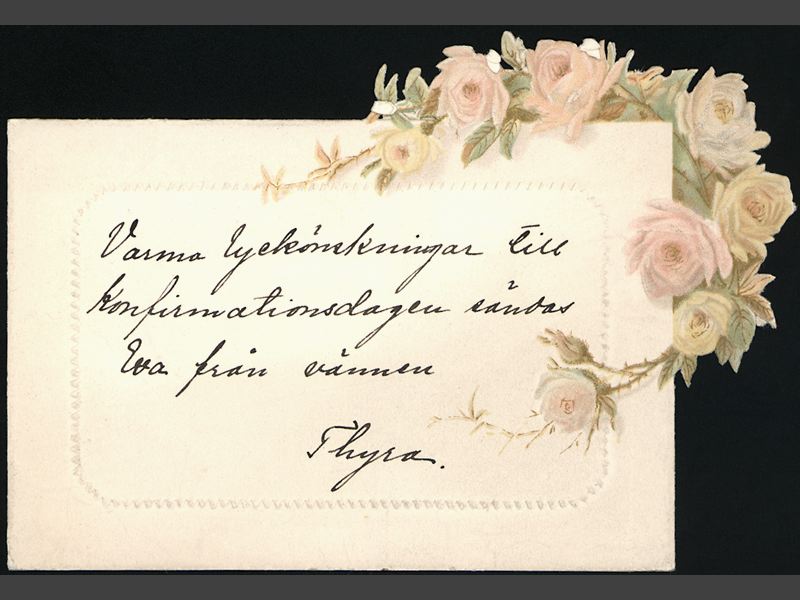 Varma lyckönskningar till
konfirmationsdagen sändas
Eva från vännen
Thyra.